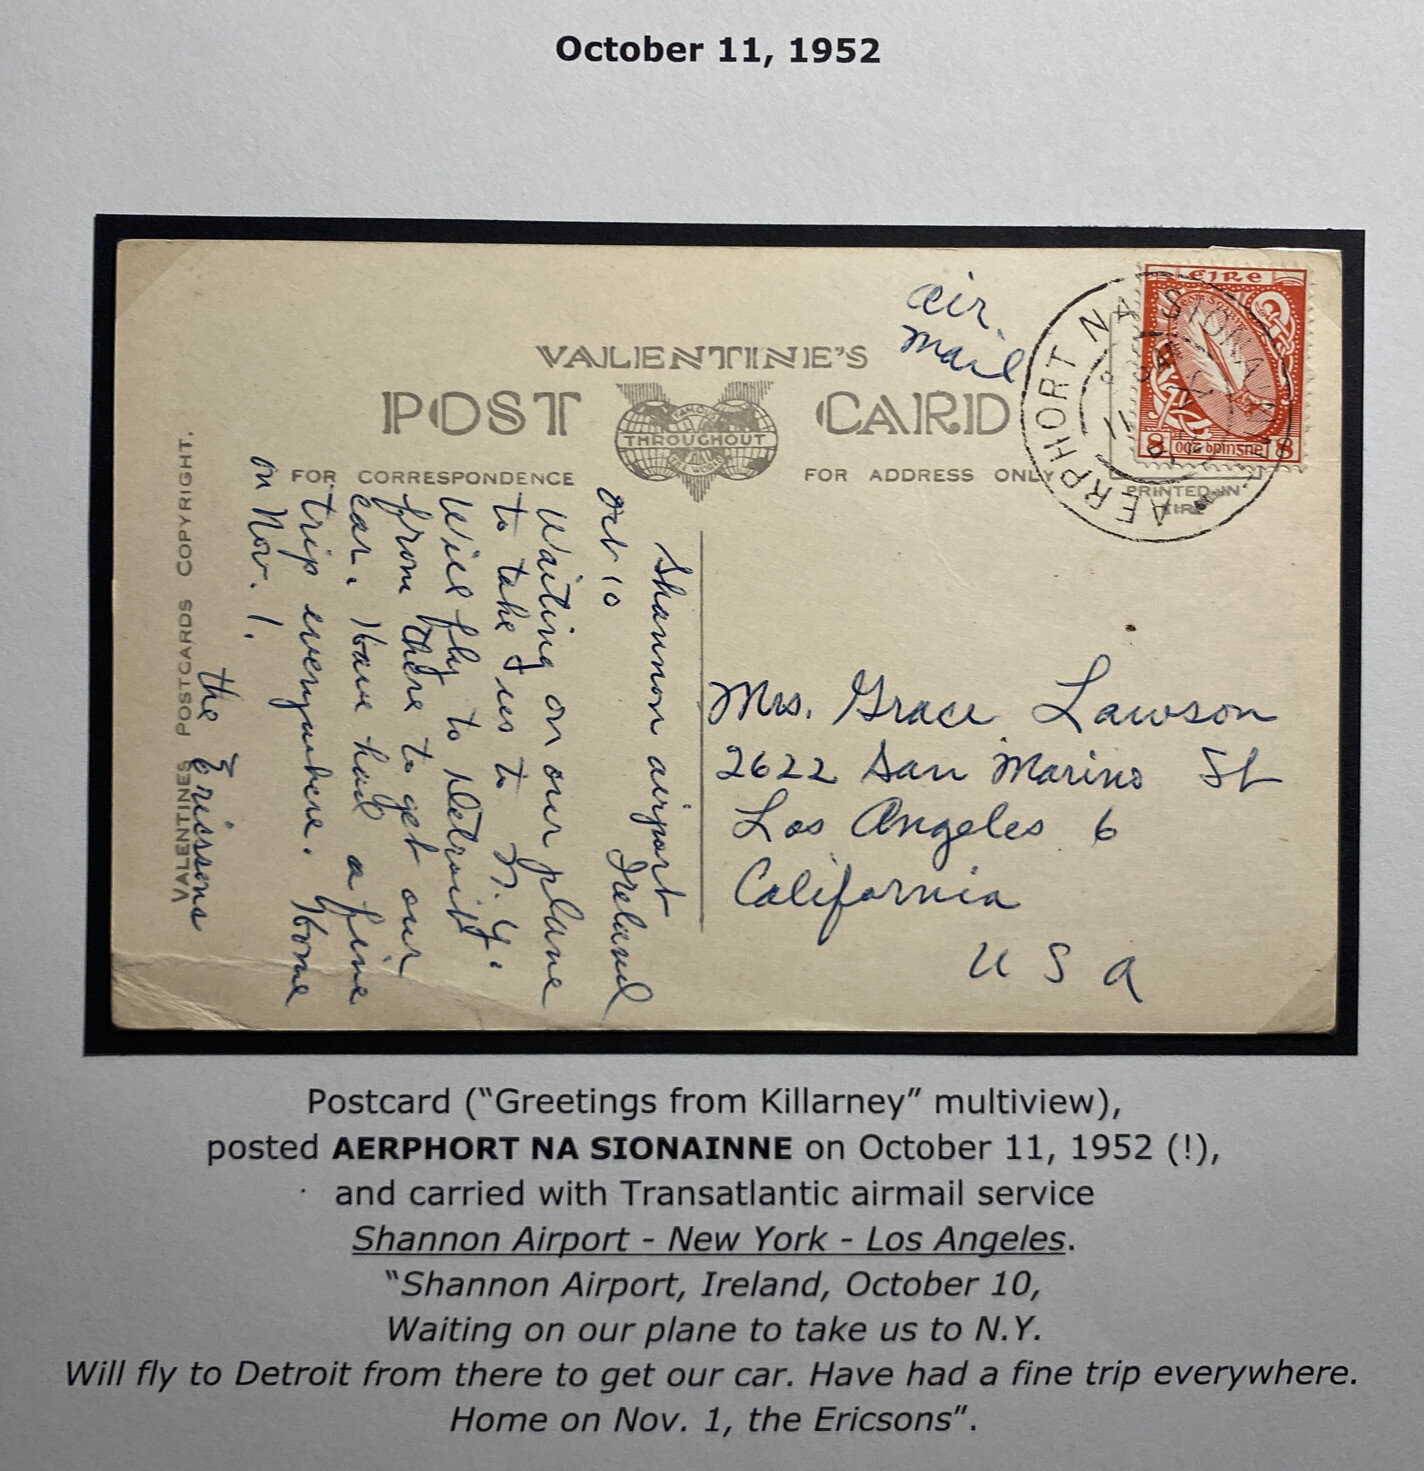 October 11, 1952
air
mail
VALENTINE'S
POST CARD
FAMOUS
THROUGHOUT
THE WORLD
FOR CORRESPONDENCE
FOR ADDRESS ONLY
PRINTED IN
EIRE
éire
8 8
AERPHORT NA SIONAINNE
VALENTINES POSTCARDS COPYRIGHT.
Shannon airport
Ireland
Oct 10
Waiting on our plane
to take us to N.Y.
Will fly to Detroit
from there to get our
car. Have had a fine
trip everywhere. Home
on Nov. 1.
the Ericsons
Mrs. Grace Lawson
2622 San Marino St
Los Angeles 6
California
U S A
Postcard (“Greetings from Killarney” multiview),
posted AERPHORT NA SIONAINNE on October 11, 1952 (!),
and carried with Transatlantic airmail service
Shannon Airport - New York - Los Angeles.
“Shannon Airport, Ireland, October 10,
Waiting on our plane to take us to N.Y.
Will fly to Detroit from there to get our car. Have had a fine trip everywhere.
Home on Nov. 1, the Ericsons”.